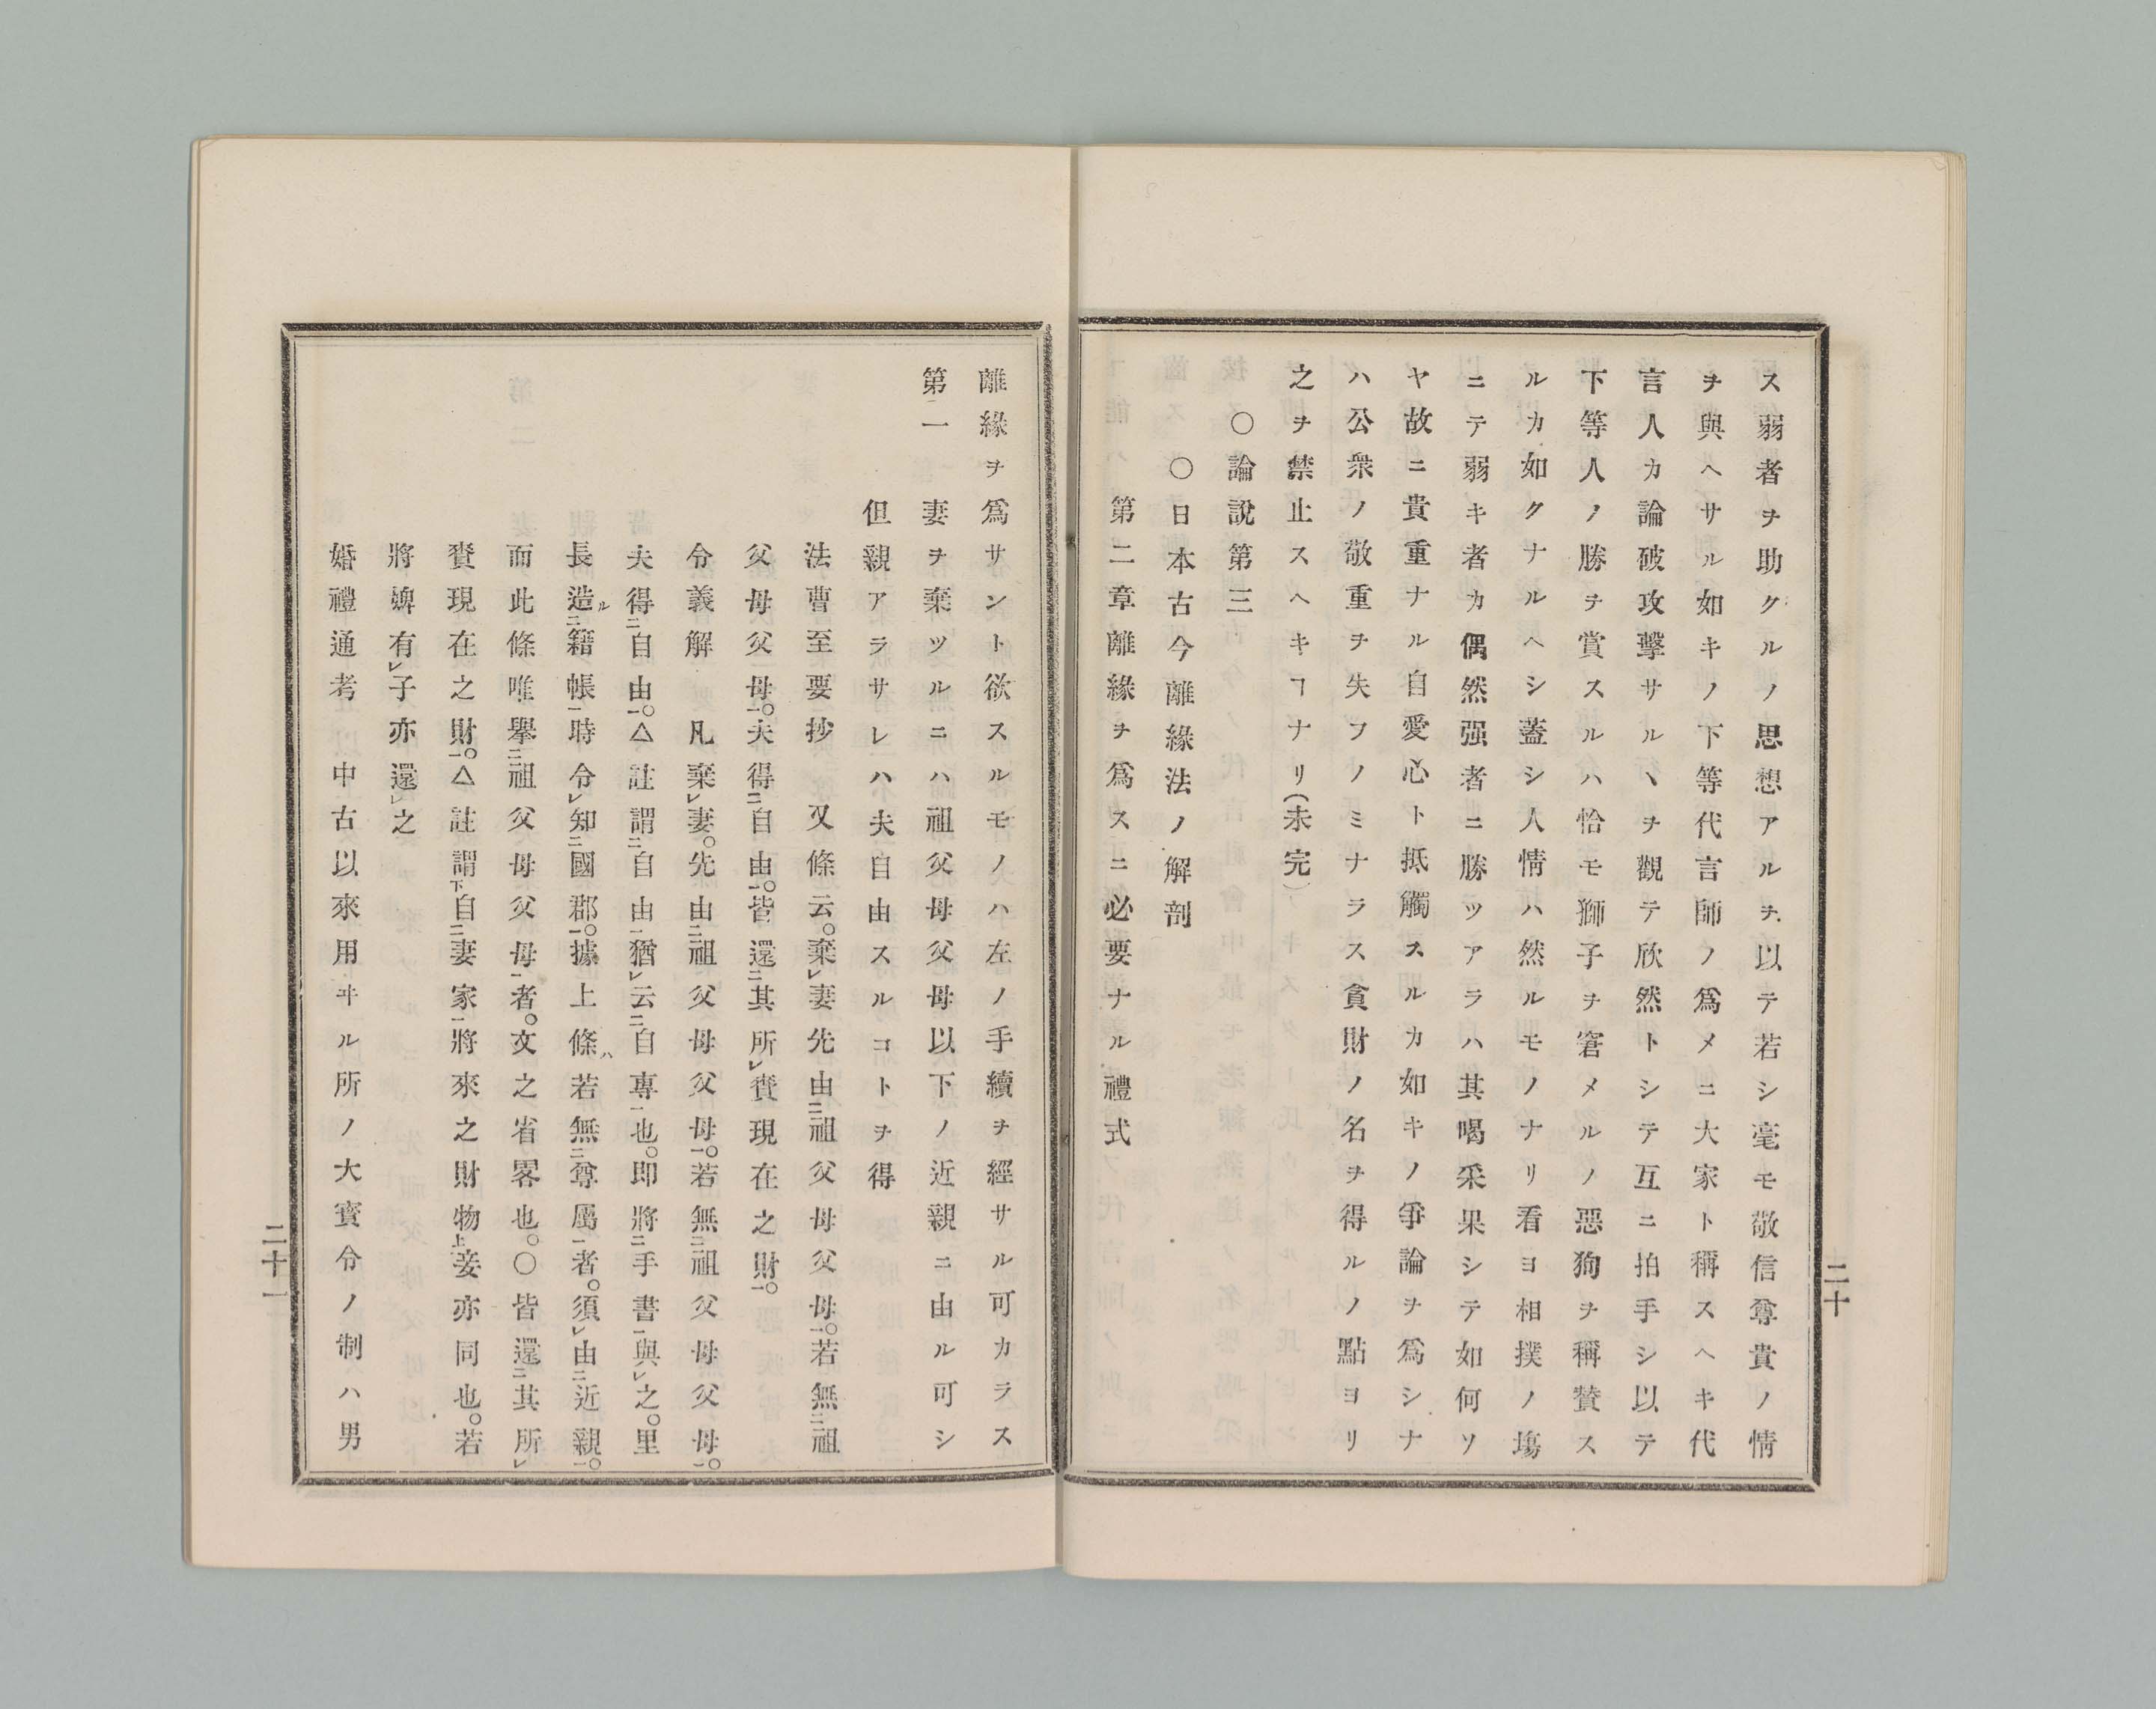 ス弱者ヲ助クルノ思想アルヲ以テ若シ毫モ敬信尊貴ノ情
ヲ與ヘサル如キノ下等代言師ノ爲メニ大家ト稱スヘキ代
言人カ論破攻擊サルヽヲ觀テ欣然トシテ互ニ拍手シ以テ
下等人ノ勝ヲ賞スルハ恰モ獅子ヲ窘メルノ惡狗ヲ稱賛ス
ルカ如クナルヘシ蓋シ人情ハ然ルモノナリ看ヨ相撲ノ塲
ニテ弱キ者カ偶然强者ニ勝ツアラハ其喝采果シテ如何ソ
ヤ故ニ貴重ナル自愛心ト抵觸スルカ如キノ爭論ヲ爲シナ
ハ公衆ノ敬重ヲ失フノミナラス貪財ノ名ヲ得ルノ點ヨリ
之ヲ禁止スヘキヿナリ(未完)
○論說第三
○日本古今離緣法ノ解剖
第二章離緣ヲ爲スニ必要ナル禮式
二十
離緣ヲ爲サント欲スルモノハ左ノ手續ヲ經サル可カラス
第一 妻ヲ棄ツルニハ祖父母父母以下ノ近親ニ由ル可シ
但親アラサレハ夫自由スルコトヲ得
法曹至要抄 又條云。棄レ妻先由二祖父母父母一。若無二祖
父母父母一。夫得二自由一。皆還二其所レ賷現在之財一。
令義解 凡棄レ妻。先由二祖父母父母一。若無二祖父母父母一。
夫得二自由一。△註謂二自由一猶レ云二自專一也。即將二手書一與レ之。里
長造ル二籍帳一時令レ知二國郡一。據上條ハ若無二尊屬一者。須レ由二近親一。
而此條唯擧二祖父母父母一者。文之省畧也。○皆還二其所レ
賷現在之財一。△註謂下自二妻家一將來之財物上妾亦同也。若
將婢有レ子亦還レ之
婚禮通考 中古以來用ヰル所ノ大寶令ノ制ハ男
二十一